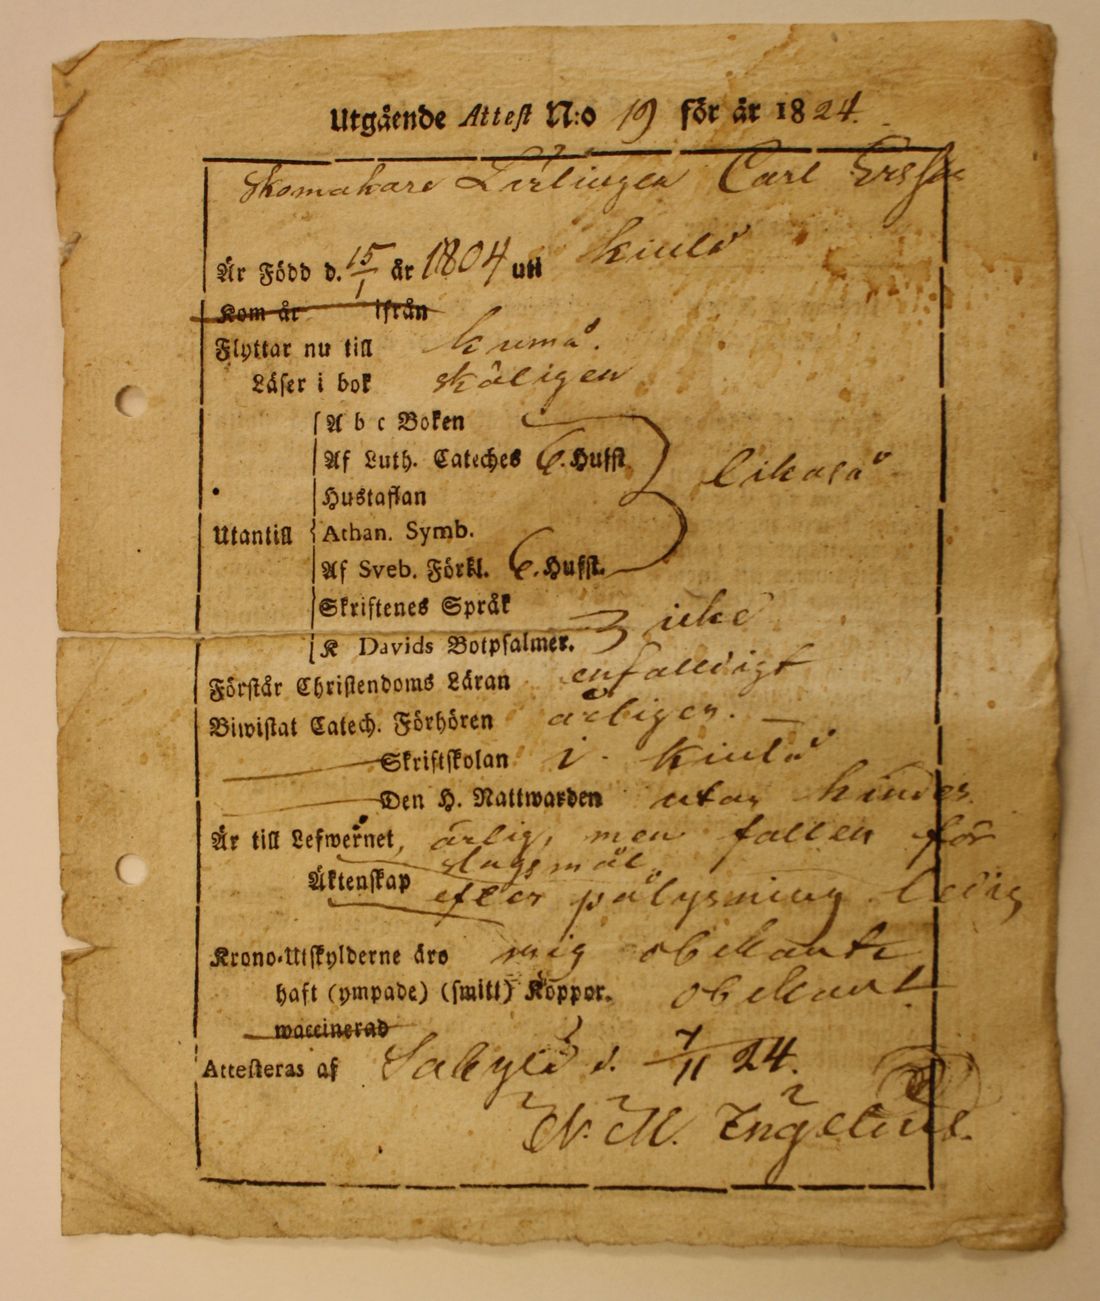 Utgående Attest N:o 19 för år 1824.
Skomakare Lärlingen Carl Ersson
Är Född d. 15/1 år 1804 uti Kiulo
Kom år ifrån
Flyttar nu till Kumå.
Läser i bok skäligen
A b c Boken
Af Luth. Cateches 6. Hufst.
Hustaflan
likaså
Utantill Athan. Symb.
Af Sveb. Förkl. 6. Hufst.
Skriftenes Språk
icke
K Davids Botpsalmer.
Förstår Christendoms Läran enfaldigt
Biwistat Catech. Förhören årligen.
Skriftskolan i Kiulo
Den H. Nattwarden utan hinder
Är till Lefwernet, ärlig, men fallen för
slagsmål
Äktenskap efter pålysning ledig
Krono-Utskylderne äro mig obekante
haft (ympade) (smitt) Koppor. obekant
waccinerad
Attesteras af d. 7/11 24.
N. M. Ingelius.